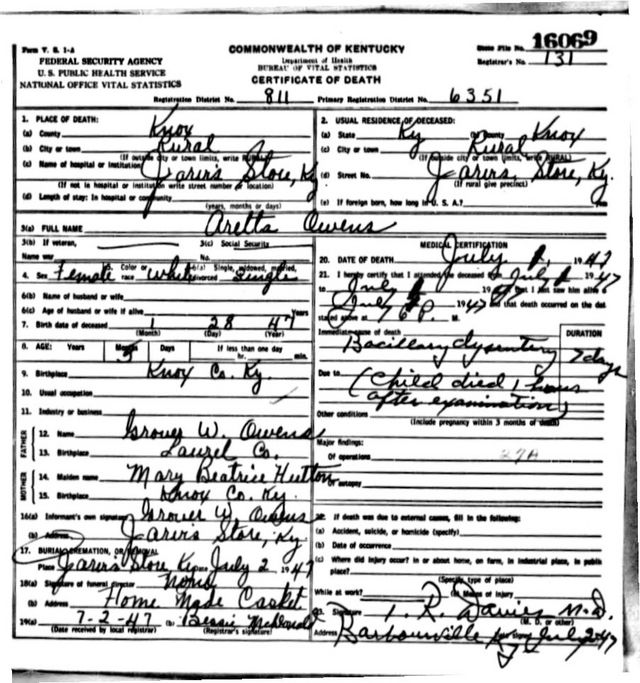 Form V. S. 1-A
FEDERAL SECURITY AGENCY
U. S. PUBLIC HEALTH SERVICE
NATIONAL OFFICE VITAL STATISTICS
COMMONWEALTH OF KENTUCKY
Department of Health
BUREAU OF VITAL STATISTICS
CERTIFICATE OF DEATH
State File No. 16069
Registrar's No. 131
Registration District No. 811 Primary Registration District No. 6351
1. PLACE OF DEATH:
(a) County Knox
(b) City or town Rural
(If outside city or town limits, write RURAL)
(c) Name of hospital or institution Jarvis Store, Ky
(If not in hospital or institution write street number or location)
(d) Length of stay: In hospital or community
(years, months or days)
2. USUAL RESIDENCE OF DECEASED:
(a) State Ky (b) County Knox
(c) City or town Rural
(If outside city or town limits, write RURAL)
(d) Street No. Jarvis Store, Ky.
(If rural give precinct)
(e) If foreign born, how long in U. S. A.?
3(a) FULL NAME Aretta Owens
3(b) If veteran,
Name war
3(c) Social Security
No.
4. Sex Female Color or race White 6(a) Single, widowed, married, divorced Single
6(b) Name of husband or wife
6(c) Age of husband or wife if alive Years
7. Birth date of deceased 1 28 47
(Month) (Day) (Year)
8. AGE: Years Months 5 Days If less than one day
hr. min.
9. Birthplace Knox Co. Ky.
10. Usual occupation
11. Industry or business
FATHER
12. Name Grover W. Owens
13. Birthplace Laurel Co.
MOTHER
14. Maiden name Mary Beatrice Hutton
15. Birthplace Knox Co. Ky.
16(a) Informant's own signature Grover W. Owens
(b) Address Jarvis Store, Ky.
17. BURIAL, CREMATION, OR REMOVAL
Place Jarvis Store Ky July 2 1947
18(a) Signature of funeral director None
(b) Address Home Made Casket
19(a) 7-2-47 (b) Bessie
(Date received by local registrar) (Registrar's signature)
MEDICAL CERTIFICATION
20. DATE OF DEATH July 1, 1947
21. I hereby certify that I attended the deceased July 1 1947
to July 1 19 that I last saw him alive
July 1 1947 and that death occurred on the date
stated above at 6 P. M.
Immediate cause of death
Bacillary dysentery
DURATION
7 days
Due to (Child died 1 hour
after examination)
Other conditions
(Include pregnancy within 3 months of death)
Major findings:
Of operations 27A
Of autopsy
22. If death was due to external causes, fill in the following:
(a) Accident, suicide, or homicide (specify)
(b) Date of occurrence
(c) Where did injury occur? In or about home, on farm, in industrial place, in public
place?
(Specify type of place)
While at work? (e) Means of injury
23. Signature I. R. Davies M.D.
(M. D. or other)
Address Barbourville Ky July 2-47